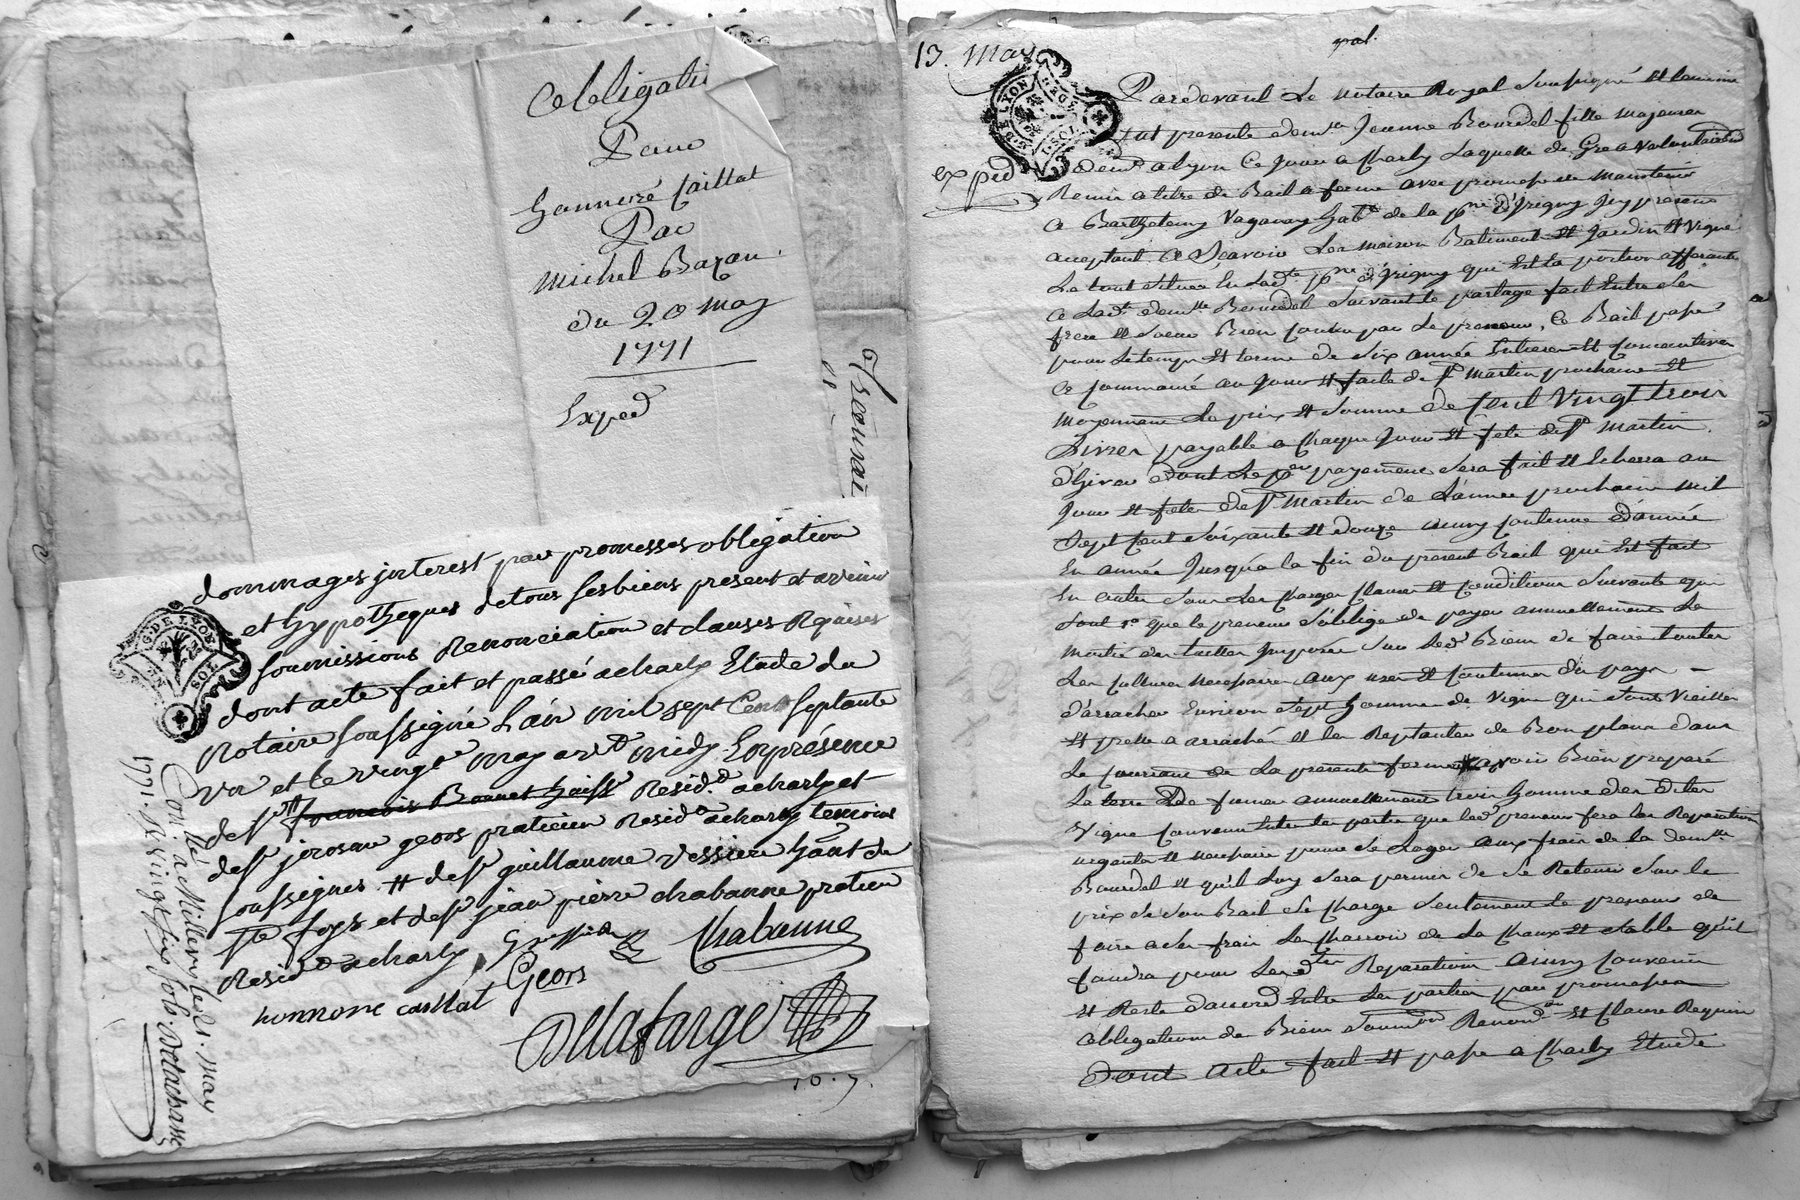 Obligatio
Pour
honnoré Caillat
Par
Michel Bazan
du 20 may
1771
Exped
dommages jnterest par promesses obligation
et hypotheques de tous ses biens present et avenir
soumissions Renonciation et clauses Rquises
dont acte fait et passé a charly Etude du
Notaire soussigné L'an mil sept Cent septante
un et le vingt may avt midy En présence
de sr francois Bonnet huissr Resid.t a charly et
de sr jerosme geors praticien Resid.t a charly temoins
soussignes # de sr guillaume vessiere hant de
ste foys et de sr jean pierre chabanne pratien
Resid.t a charly
Chabanne
Geors
honnore caillat
Dellafarge
10. 7.
Con.lé a Millery le 21. may
1771. R vingt six sols. Delacharme
G. DE LYON
13. May
G. DE LYON
exped
Pardevant Le notaire Royal soussigné et temoins
fut presente dem.lle Jeanne Bourdel fille majeure
dem.t a Lyon Ce jour a Charly Laquelle de Gré a volontairem.t
Remis a titre de Bail a ferme avec promesse de maintenir
a Barthelemy Vaganay hab.t de la p.sse d'Jrigny Jcy present
acceptant a Sçavoir Les maison Batiment et Jardin et Vigne
Le tout situé En lad.te p.sse d'jrigny qui Est la portion afferante
a Lad.te dem.lle Bourdel suivant le partage fait Entre Ses
frere et soeur Bien connu par Le preneur, Ce Bail passé
pour Le temps et terme de six année Entiere et consecutives
a commancé au jour et feste de St Martin prochaine et
moyennant Le prix et somme de Cent Vingt trois
Livres payable a chaque Jour et fete de St Martin
d'hiver dont Le p.er payement sera fait et Echerra au
Jour et fete de St Martin de L'année prochaine mil
Sept Cent soixante et douze ainsy continué d'année
En année Jusqu'a la fin du present Bail qui Est fait
En outre sous Les charges clauses et conditions suivante qui
sont 1° que le preneur s'oblige de payer annuellement La
moitié des tailles Jmposée sur led.t Bien de faire toutes
Les cultures necessaires aux uzes et coutumes du pays
d'arracher Environ sept homme de Vigne qui sont Vieilles
et prette a arraché et les Replanter de Bon plans dans
Le courrant de La presente ferme apres avoir Bien preparé
La terre de fumer annuellement trois homme des dites
Vigne convenu Entre les partie que led.t preneur fera les Reparation
urgente et necessaire pour se Loger aux frais de la dem.lle
Bourdel et qu'il Luy sera permis de se Retenir sur le
prix de son Bail se charge seulement Le preneur de
faire a ses frais Les charrois de La chaux et sable qu'il
faudra pour Lesd.tes Reparation ainsy convenu
et Reste d'accord Entre Les parties par promesses
obligations de Biens soumi.on Renon.on et clause Requise
dont acte fait et passé a Charly Etude